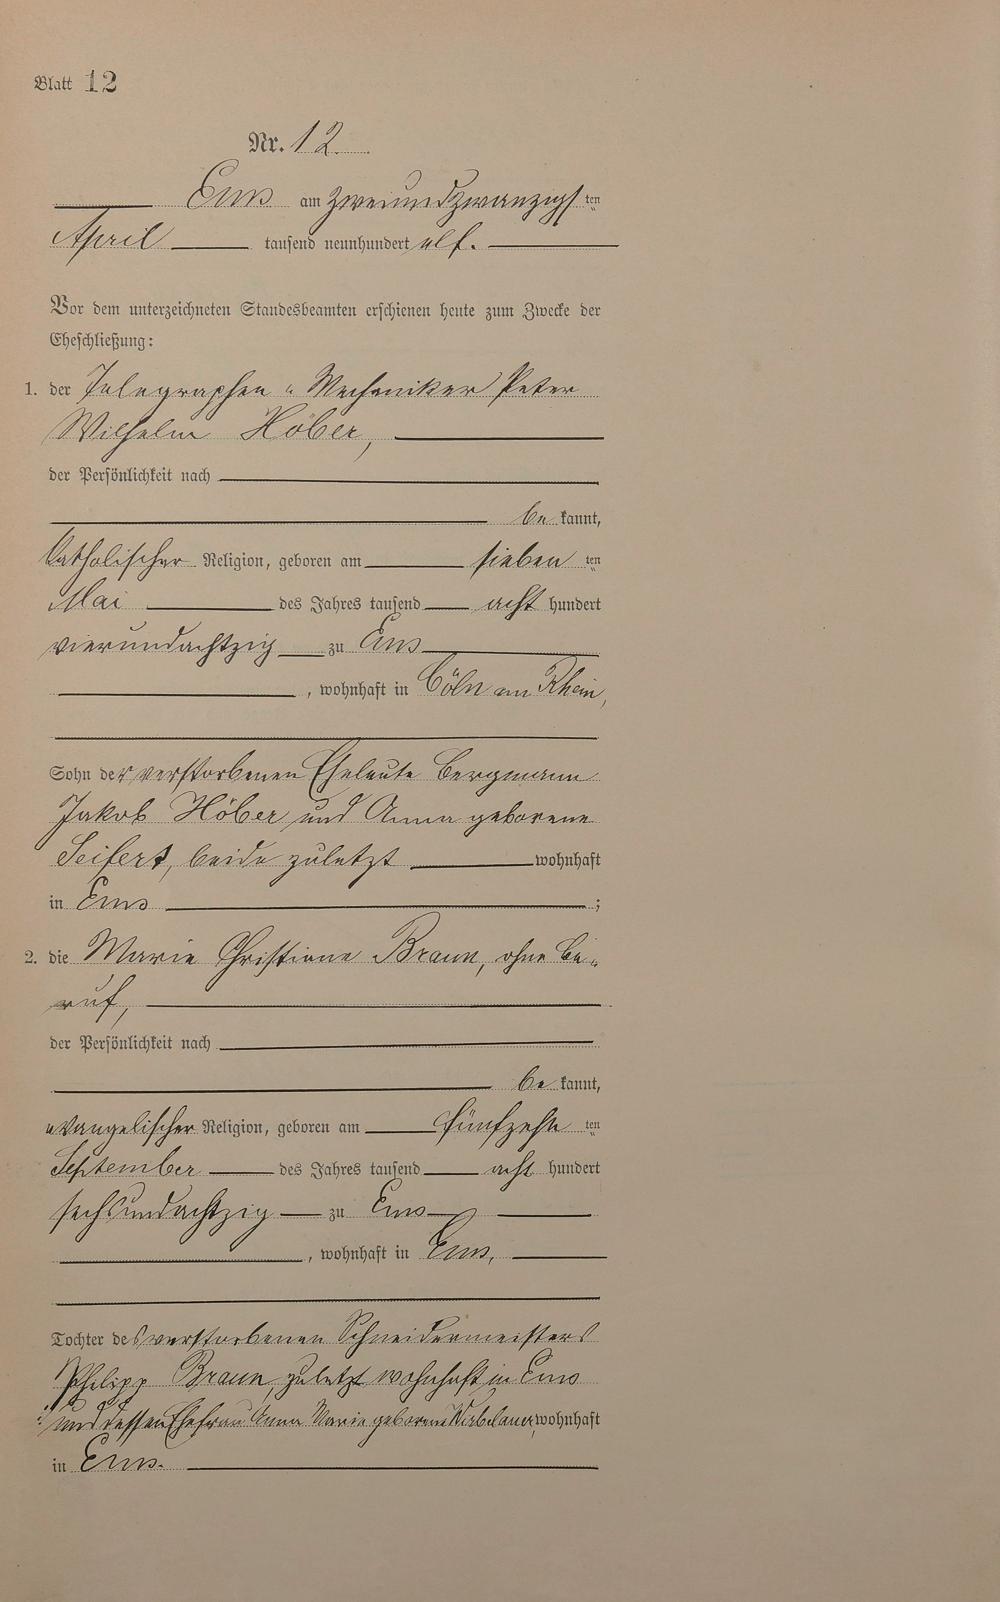 Blatt 12
Nr. 12.
Ems am zweiundzwanzigsten
April tausend neunhundert elf.
Vor dem unterzeichneten Standesbeamten erschienen heute zum Zwecke der
Eheschließung:
1. der Telegraphen-Mechaniker Peter
Wilhelm Höber,
der Persönlichkeit nach
be kannt,
katholischer Religion, geboren am sieben ten
Mai des Jahres tausend acht hundert
vierundachtzig zu Ems
, wohnhaft in Cöln am Rhein,
Sohn der verstorbenen Eheleute Bergmann
Jakob Höber und Anna geborene
Seifert, beide zuletzt wohnhaft
in Ems ;
2. die Marie Christiane Braun, ohne Be-
ruf,
der Persönlichkeit nach
be kannt,
evangelischer Religion, geboren am fünfzehn ten
September des Jahres tausend acht hundert
sechsundachtzig zu Ems
, wohnhaft in Ems,
Tochter des verstorbenen Schneidermeisters
Philipp Braun, zuletzt wohnhaft in Ems
und dessen Ehefrau Anna Marie geborene wohnhaft
in Ems.